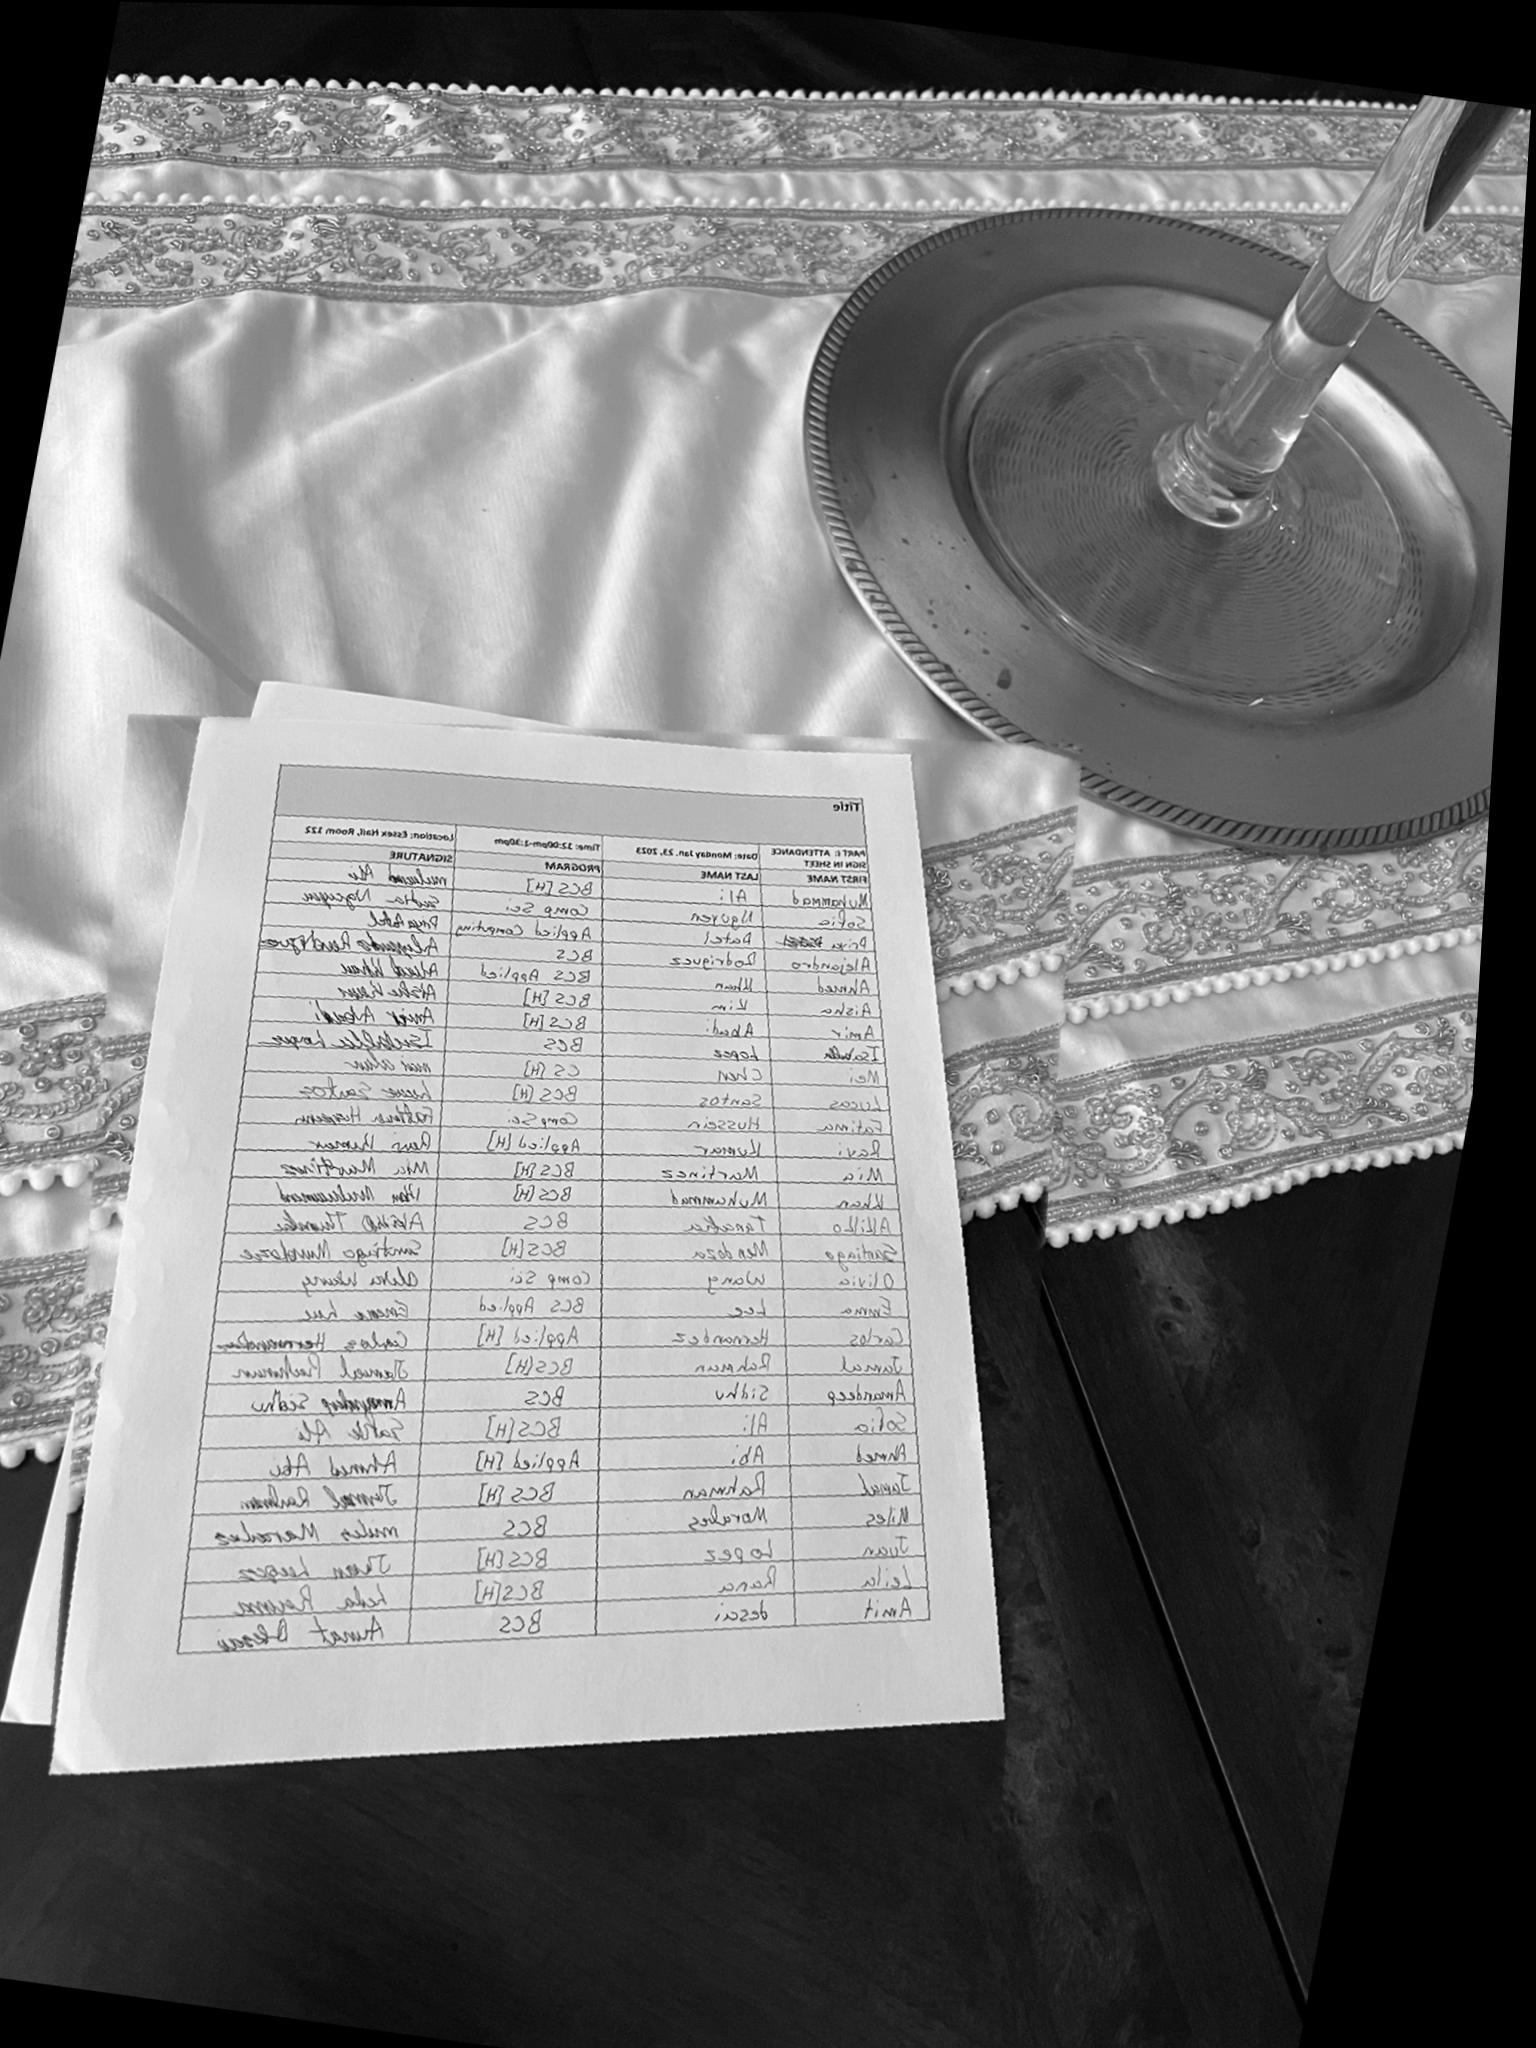 Title
PART I: ATTENDANCE SIGN IN SHEET Date: Monday Jan. 23, 2023 Time: 12:00pm-1:30pm Location: Essex Hall, Room 122
FIRST NAME LAST NAME PROGRAM SIGNATURE
Muhammad Ali BCS [H] Ali
Sofia Nguyen Comp Sci Nguyen
Priya Patel Applied Computing Priya Patel
Alejandro Rodriguez BCS Alejandro Rodriguez
Ahmed Khan BCS Applied Ahmed Khan
Aisha Kim BCS [H]
Amir Abadi BCS [H] Amir Abadi
Isabella Lopez BCS Isabella Lopez
Mei Chen CS [H]
Lucas Santos BCS [H] Santos
Fatima Hussein Comp Sci Fatima Hussein
Ravi Kumar Applied [H] Kumar
Mia Martinez BCS [H] Mia Martinez
Khan Muhammad BCS [H] Muhammad
BCS
Santiago Mendoza BCS [H] Santiago
Olivia Wang Comp Sci
Emma Lee BCS Applied
Carlos Hernandez Applied [H] Carlos Hernandez
Jamal Rahman BCS [H] Jamal Rahman
Amandeep Sidhu BCS Amandeep Sidhu
Sofia Ali BCS [H] Ali
Ahmed Abi Applied [H] Ahmed Abi
Jamal Rahman BCS [H] Jamal Rahman
Miles Morales BCS miles Morales
Juan Lopez BCS [H] Juan
Leila Rana BCS [H]
Amit desai BCS